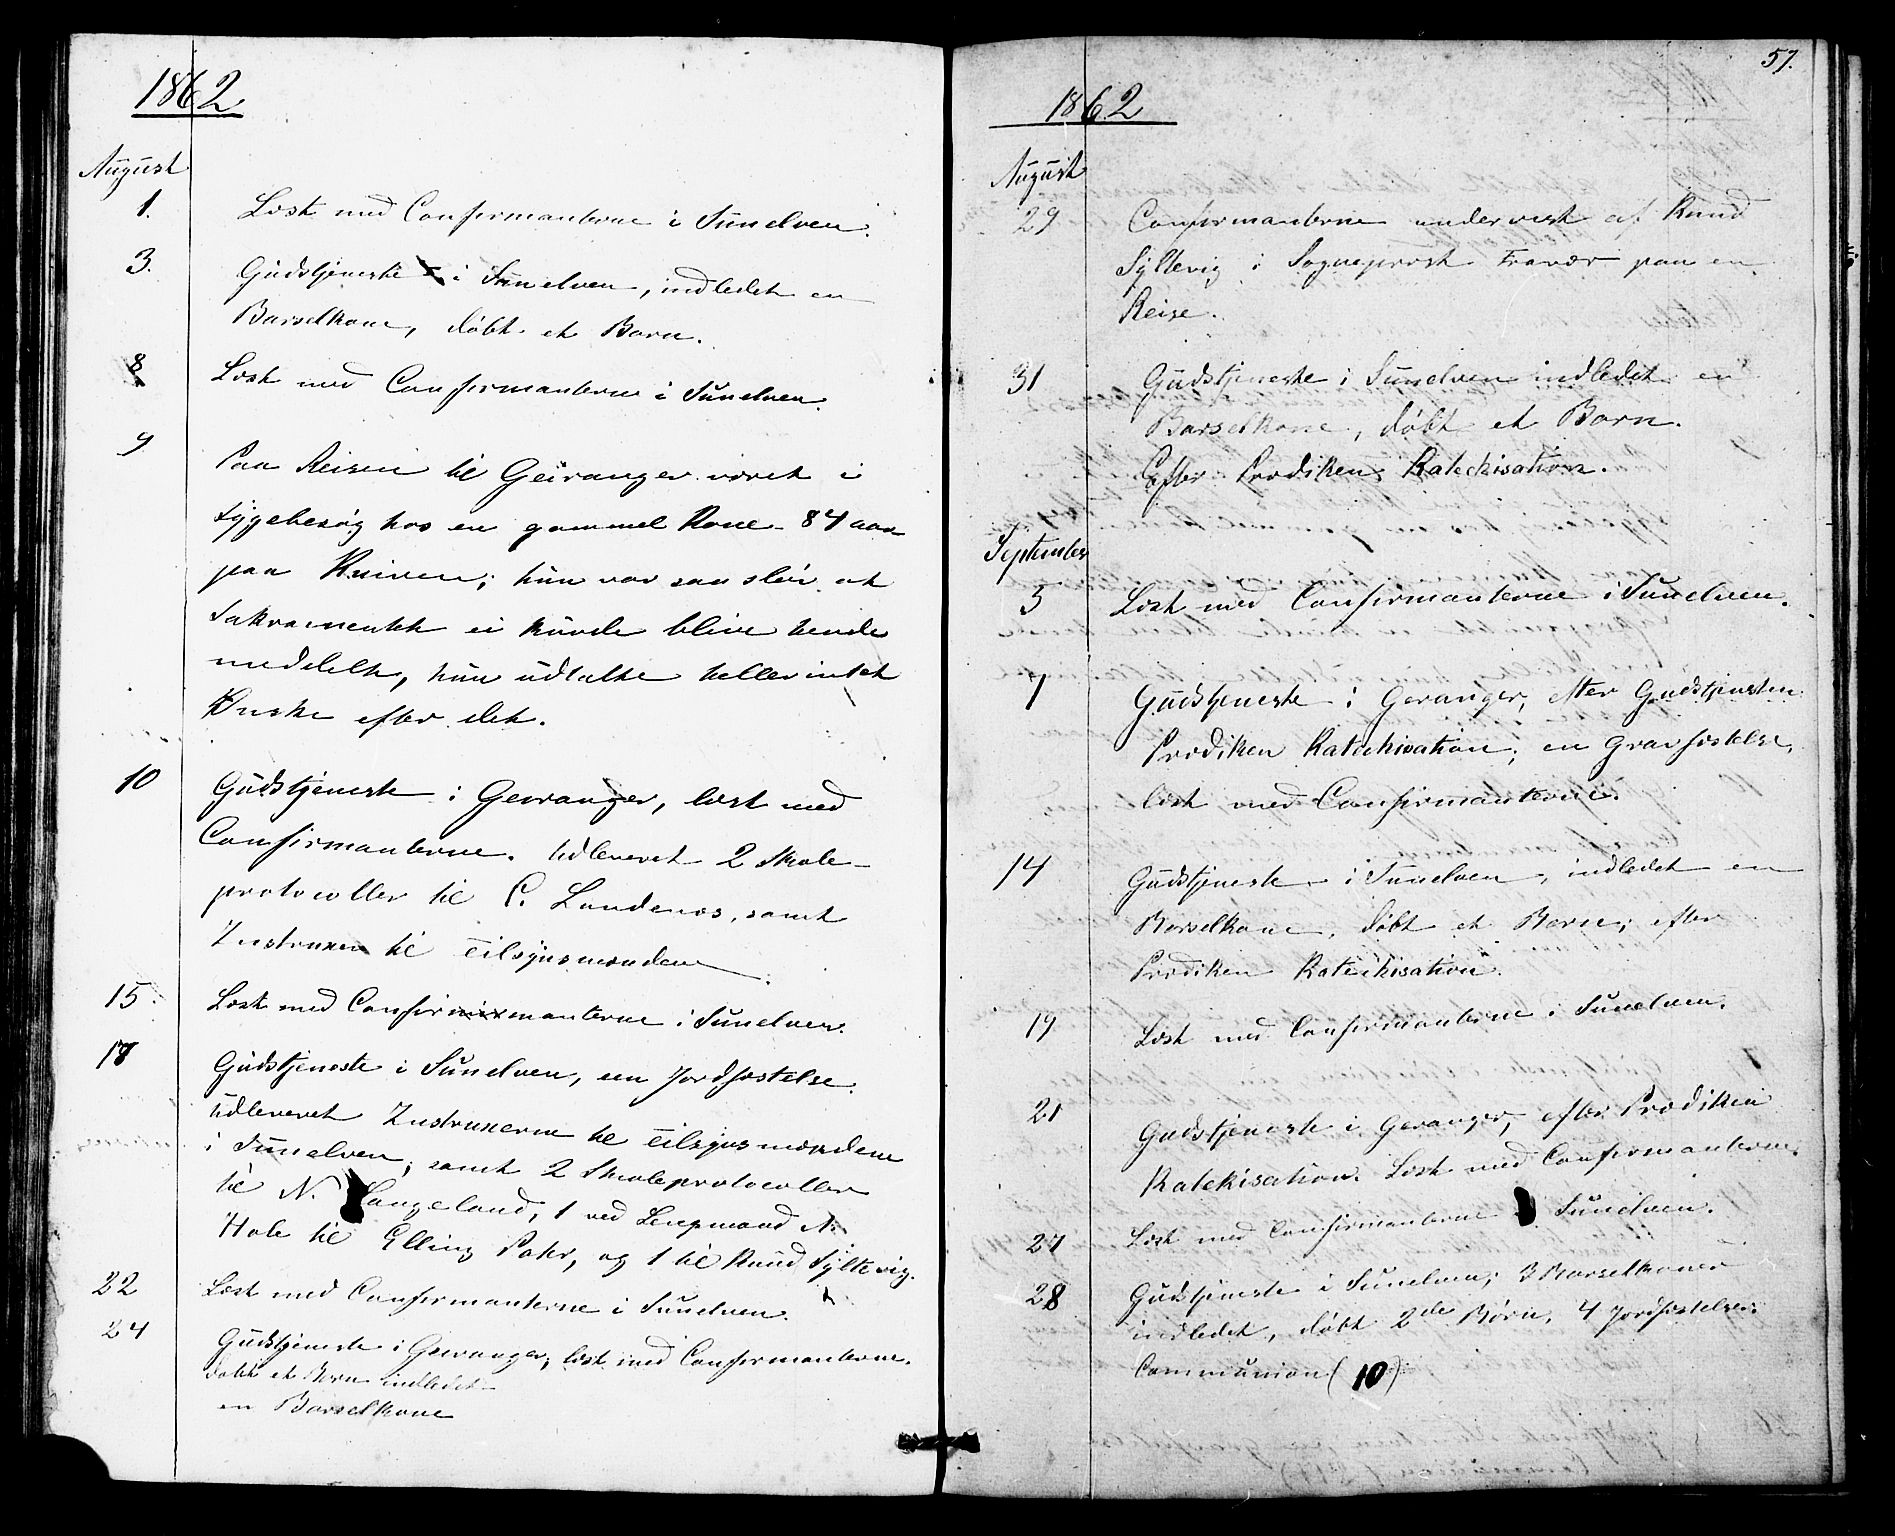 1862
August
1. Læst med Confirmanterne i Sunelven.
3. Gudstjeneste i Sunelven, indledet en
Barselkone, døbt et Barn.
8 Læst med Confirmanterne i Sunelven.
9 Paa Reisen til Geiranger været i
Sygebesøg hos en gammel Kone 84 aar
paa Kniven; hun var saa sløv at
Sakramentet ei kunde blive hende
meddelt, hun udtalte heller intet
Ønske efter det.
10 Gudstjeneste i Geiranger, læst med
Confirmanterne. Udleveret 2 Skole-
protocoller til C. Landenæs, samt
Instruxen til Tilsynsmændene.
15. Læst med Confirmanterne i Sunelven.
17 Gudstjeneste i Sunelven, een Jordfæstelse.
Udleveret Instruxerne til Tilsynsmændene
i Sunelven, samt 2 Skoleprotocoller
til N. Langeland, 1 ved N.
Hole til Elling og 1 til Knud Syltevig.
22 Læst med Confirmanterne i Sunelven.
24 Gudstjeneste i Geiranger, læst med Confirmanterne.
døbt et Barn indledet
en Barselkone
57.
1862
August
29 Confirmanterne undervist af Knud
Syltevig i Sogneprest Fravær paa en
Reise.
31 Gudstjeneste i Sunelven indledet en
Barselkone, døbt et Barn.
Efter Prædiken Katechisation.
September
5 Læst med Confirmanterne i Sunelven.
7 Gudstjeneste i Geranger, efter Gudstjensten
Prædiken Katechisation; en Gravfæstelse,
læst med Confirmanterne.
14 Gudstjeneste i Sunelven, indledet en
Barselkone, døbt et Barn; efter
Prædiken Katechisation.
19 Læst med Confirmanterne i Sunelven.
21 Gudstjeneste i Geranger, efter Prædiken
Katekisation. Læst med Confirmanterne.
27 Læst med Confirmanterne i Sunelven.
28 Gudstjeneste i Sunelven; 3 Barselkoner
indledet, døbt 2de Børn, 4 Jordfæstelser.
Communion (10)